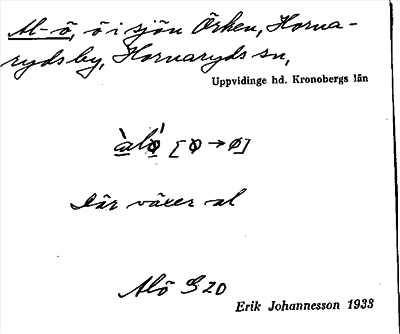 Al-ö, ö i sjön Örken, Horna-
rydsby, Hornaryds sn,
Uppvidinge hd. Kronobergs län
àlǿ [ꝋ → ø]
Där växer al
Alö G 20
Erik Johannesson 1933